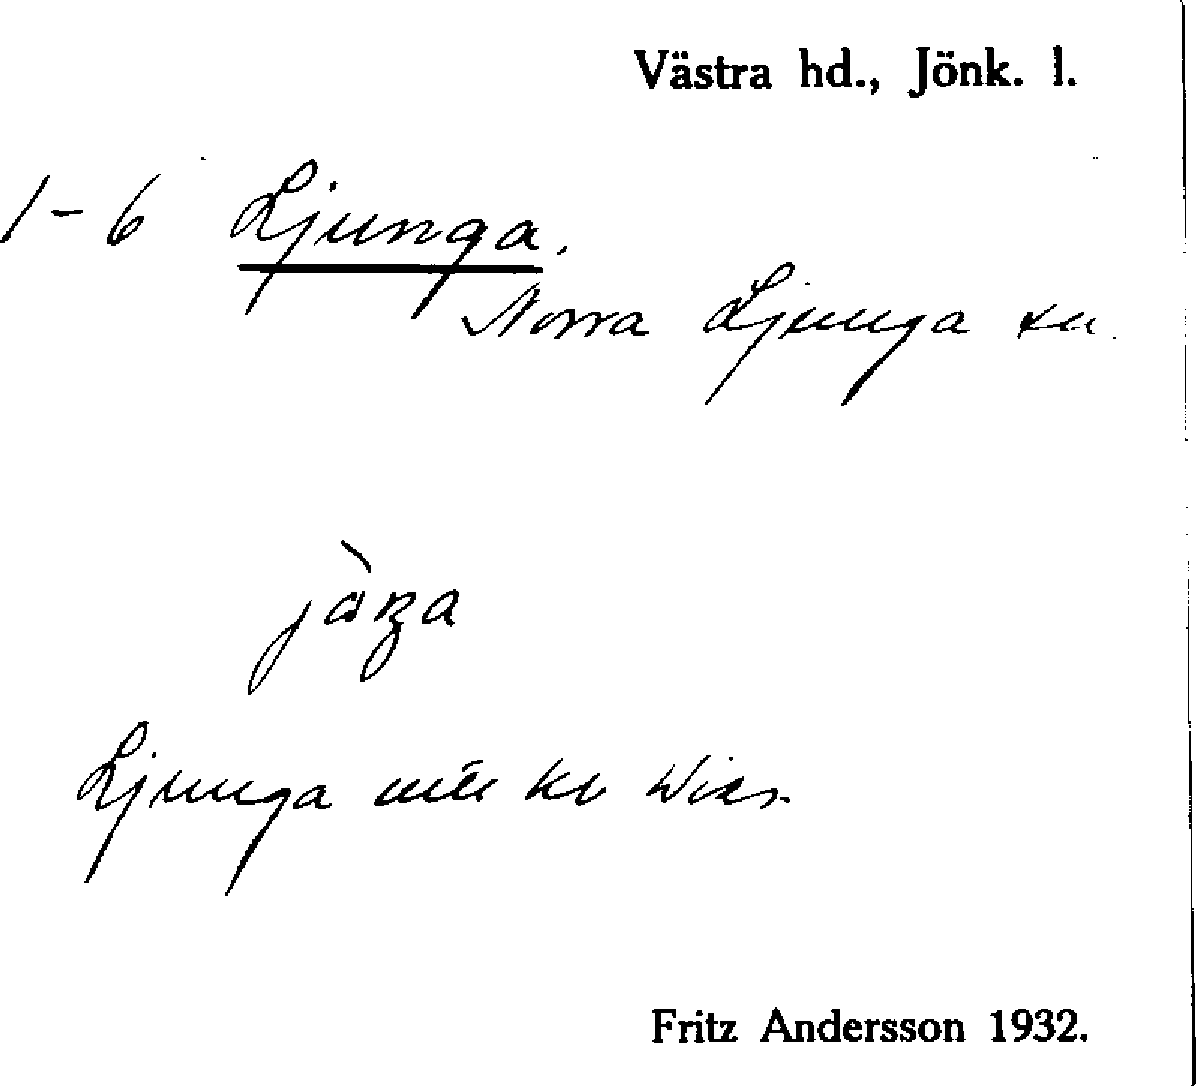 Västra hd., Jönk. l.
1-6 Ljunga.
Norra Ljunga sn.
Ljunga
Fritz Andersson 1932.